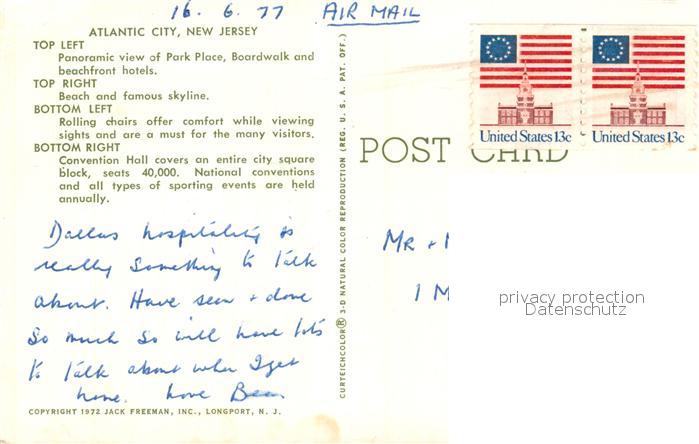 16. 6. 77 AIR MAIL
ATLANTIC CITY, NEW JERSEY
TOP LEFT
Panoramic view of Park Place, Boardwalk and
beachfront hotels.
TOP RIGHT
Beach and famous skyline.
BOTTOM LEFT
Rolling chairs offer comfort while viewing
sights and are a must for the many visitors.
BOTTOM RIGHT
Convention Hall covers an entire city square
block, seats 40,000. National conventions
and all types of sporting events are held
annually.
Dallas hospitality is
really something to talk
about. Have seen + done
so much so will have lots
to talk about when I get
home. Love
COPYRIGHT 1972 JACK FREEMAN, INC., LONGPORT, N. J.
CURTEICHCOLOR® 3-D NATURAL COLOR REPRODUCTION (REG. U. S. A. PAT. OFF.)
POST CARD
United States 13c
United States 13c
MR +
1 M
privacy protection
Datenschutz